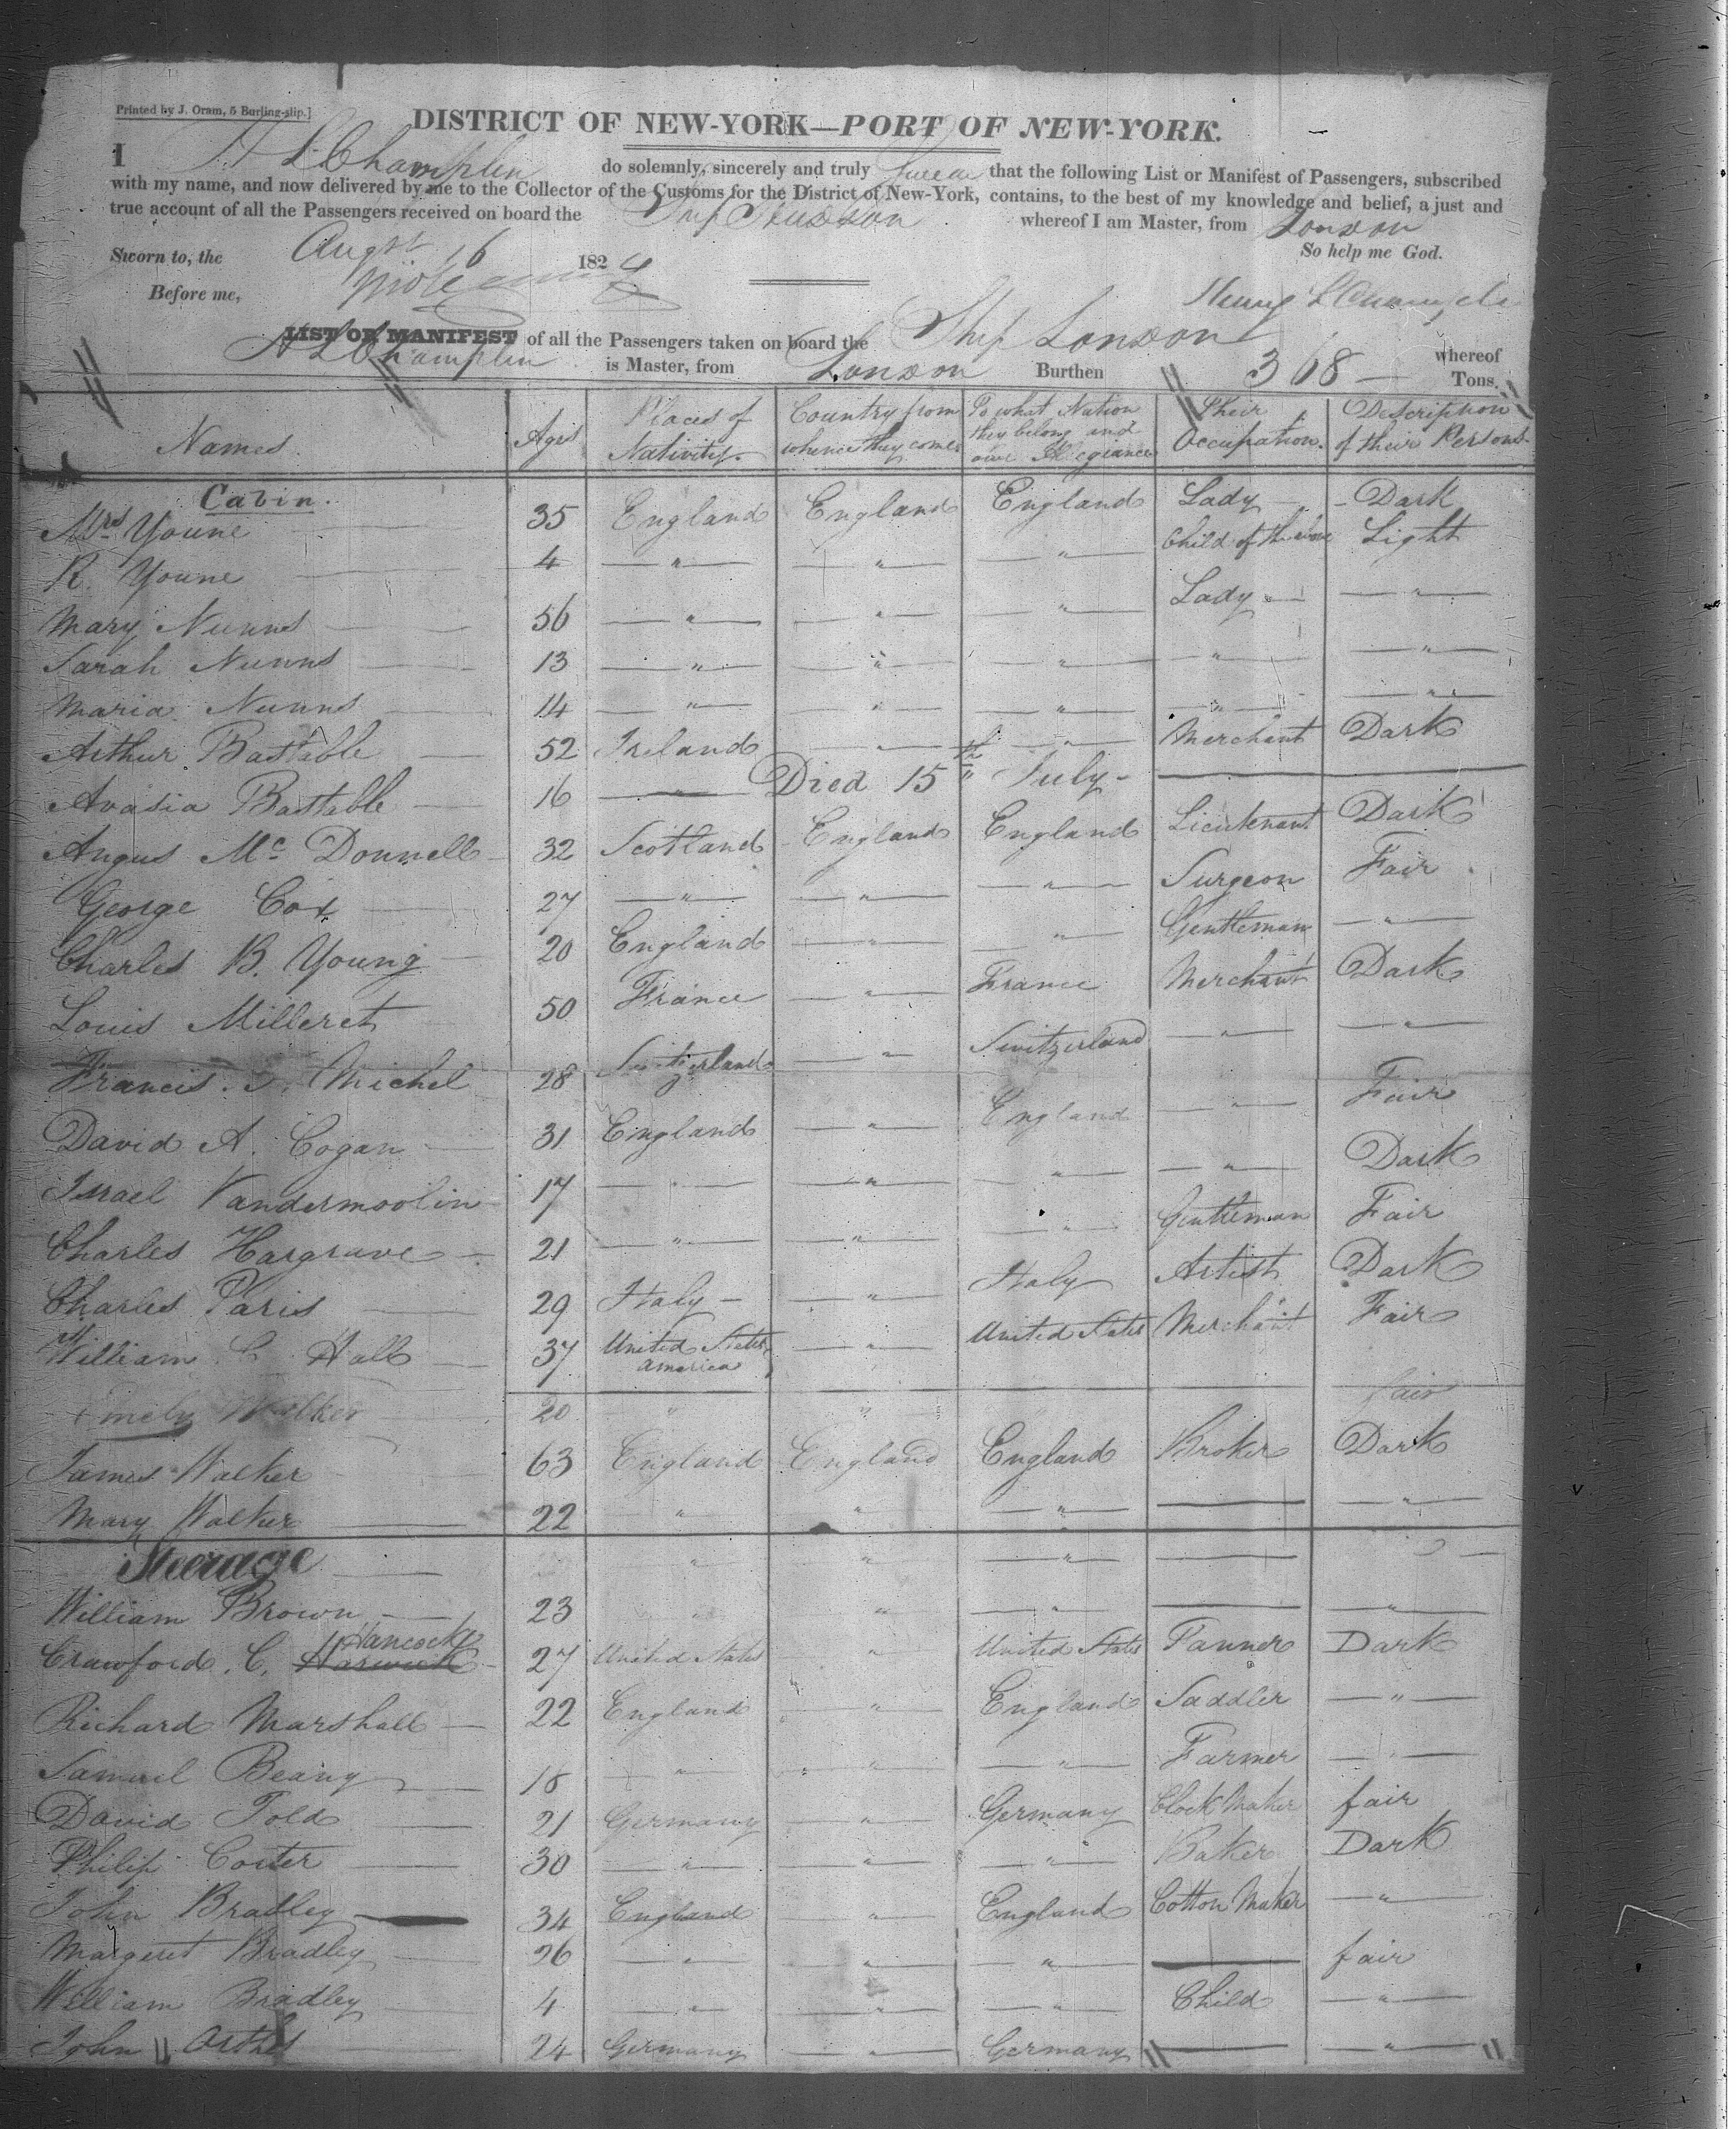 Printed by J. Oram, 5 Burling-slip.]
DISTRICT OF NEW-YORK—PORT OF NEW-YORK.
I H L Champlin do solemnly, sincerely and truly Swear that the following List or Manifest of Passengers, subscribed
with my name, and now delivered by me to the Collector of the Customs for the District of New-York, contains, to the best of my knowledge and belief, a just and
true account of all the Passengers received on board the Ship Hudson whereof I am Master, from London
Sworn to, the Augst 16 1824 So help me God.
Before me, Henry L Champlin
LIST OR MANIFEST of all the Passengers taken on board the Ship London whereof
H L Champlin is Master, from London Burthen 368 — Tons.
Names Ages Places of Nativity Country from whence they come To what Nation they belong and owe Allegiance Their Occupation. Description of their Persons
Cabin.
Mrs Youne 35 England England England Lady Dark
R. Youne 4 " " " Child of the above Light
Mary Nunns 56 " " " Lady "
Sarah Nunns 13 " " " " "
Maria Nunns 14 " " " " "
Arthur Bastable 52 Ireland " " Merchant Dark
Avasia Bastable 16 " Died 15th July
Angus Mc Donnell 32 Scotland England England Lieutenant Dark
George Cox 27 " " " Surgeon Fair
Charles B. Young 20 England " " Gentleman "
Louis Milleret 50 France " France Merchant Dark
Francis Michel 28 Switzerland " Switzerland " "
David A. Cogan 31 England " England " Fair
Israel Vandermoolin 17 " " " " Dark
Charles Hargrave 21 " " " Gentleman Fair
Charles Paris 29 Italy " Italy Artist Dark
William C. Hall 37 United States America " United States Merchant Fair
Emely Walker 20 " " fair
James Walker 63 England England England Broker Dark
Mary Walker 22 " " " "
Steerage " " "
William Brown 23 " " " "
Hancock
Crawford. C. Harwick 27 United States " United States Tanner Dark
Richard Marshall 22 England " England Saddler "
Samuel Beany 18 " " " Farmer "
David Told 21 Germany " Germany Clock Maker fair
Philip Coster 30 " " " Baker Dark
John Bradley 34 England " England Cotton Maker "
Margeret Bradley 26 " " " fair
William Bradley 4 " " " Child "
John Orthes 24 Germany " Germany "